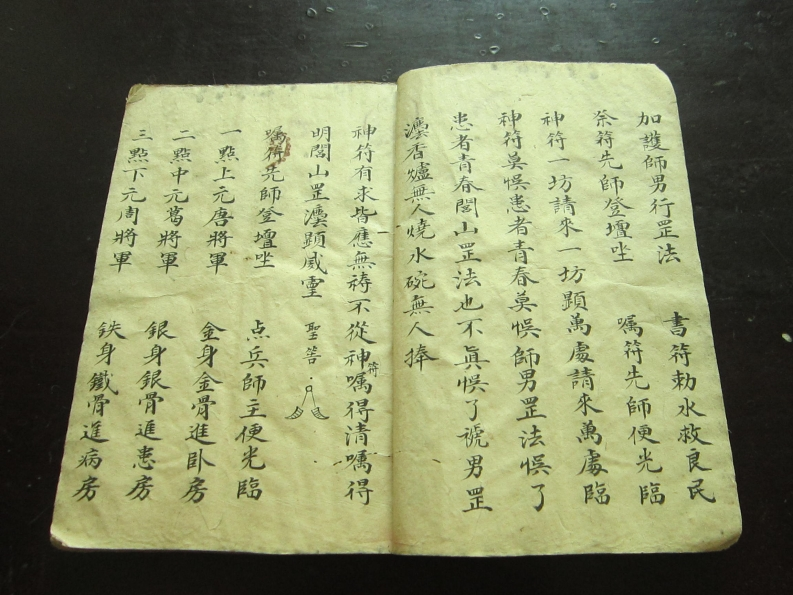 加護師男行罡法　書符勅水救良民
祭符先師登壇坐　嘱符先師便光臨
神符一坊請來一坊顕萬處請來萬處臨
神符莫悮患者青春莫悮師男罡法悮了
患者青春閭山罡法也不真悮了號男罡
灋香爐無人燒水碗無人捧
神符有求皆應無祷不從神符嘱得清嘱得
明閭山罡灋顕威霊　聖筶
嘱符先師登壇坐　点兵師主便光臨
一點上元唐將軍　金身金骨進卧房
二點中元葛將軍　銀身銀骨進患房
三點下元周將軍　鉄身鐵骨進病房